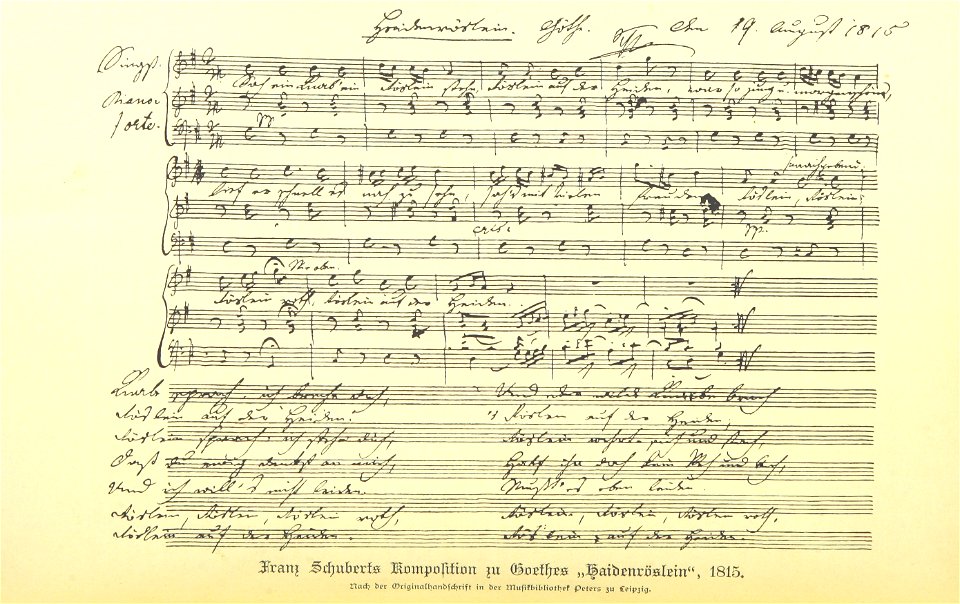 Heidenröslein. Göthe. Den 19. August 1815
Singst.
Piano-
forte.
Sah ein Knab ein Röslein stehn, Röslein auf der Heiden, war so jung u. morgenschön,
pp
nachgebend
lief er schnell es nah zu sehn, sah's mit vielen Freuden. Röslein, Röslein,
cresc
pp.
Wie oben.
Röslein roth, Röslein auf der Heiden.
Knabe sprach: ich breche dich,
Röslein auf der Heiden!
Röslein sprach: ich steche dich,
Daß du ewig denkst an mich,
Und ich will's nicht leiden.
Röslein, Röslein, Röslein roth,
Röslein auf der Heiden.
Und der wilde Knabe brach
's Röslein auf der Heiden,
Röslein wehrte sich und stach,
Half ihr doch kein Weh und Ach,
Mußt es eben leiden.
Röslein, Röslein, Röslein roth,
Röslein auf der Heiden.
Franz Schuberts Komposition zu Goethes „Haidenröslein“, 1815.
Nach der Originalhandschrift in der Musikbibliothek Peters zu Leipzig.